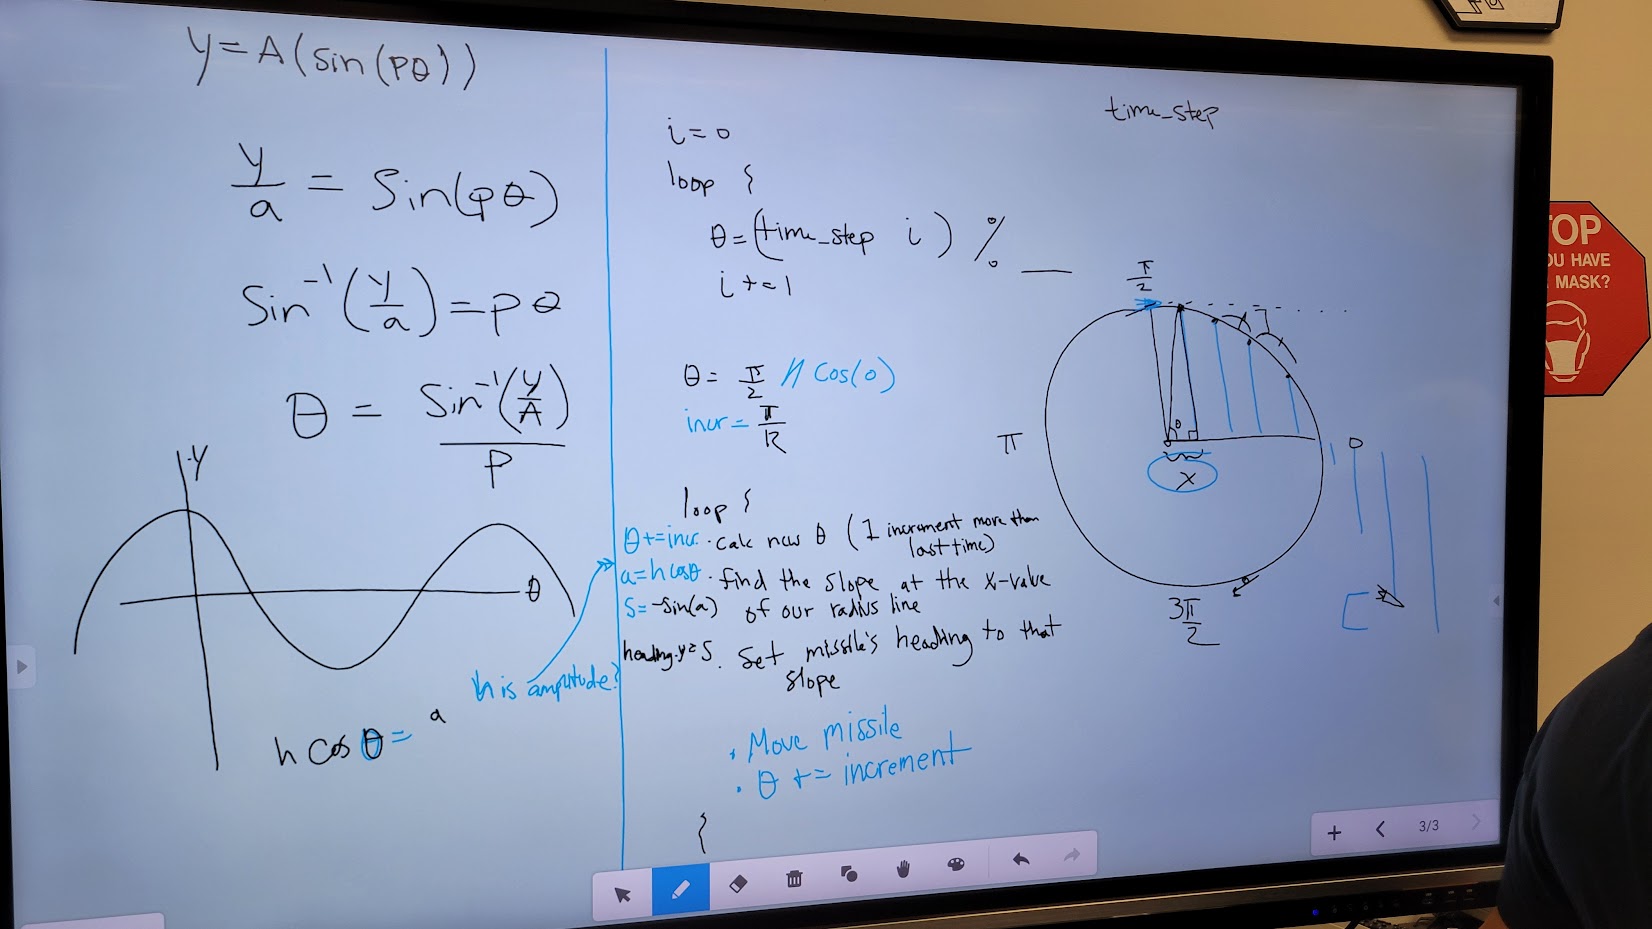 y=A(sin(pθ))
y/a = Sin(pθ)
Sin⁻¹(y/a)=pθ
θ = Sin⁻¹(y/A)/P
Y
θ
h cos θ = a
h is amplitude?
i=0
loop {
θ=(time_step i) % __
i+=1
θ= π/2 // Cos(0)
incr = π/R
loop {
θ+=incr. · calc new θ (1 increment more than
last time)
a=h cosθ · find the slope at the x-value
S=-sin(a) of our radius line
heading.y=S. Set missile's heading to that
slope
· Move missile
· θ += increment
{
time_step
π/2
π
θ
x
3π/2
3/3
TOP
OU HAVE
MASK?